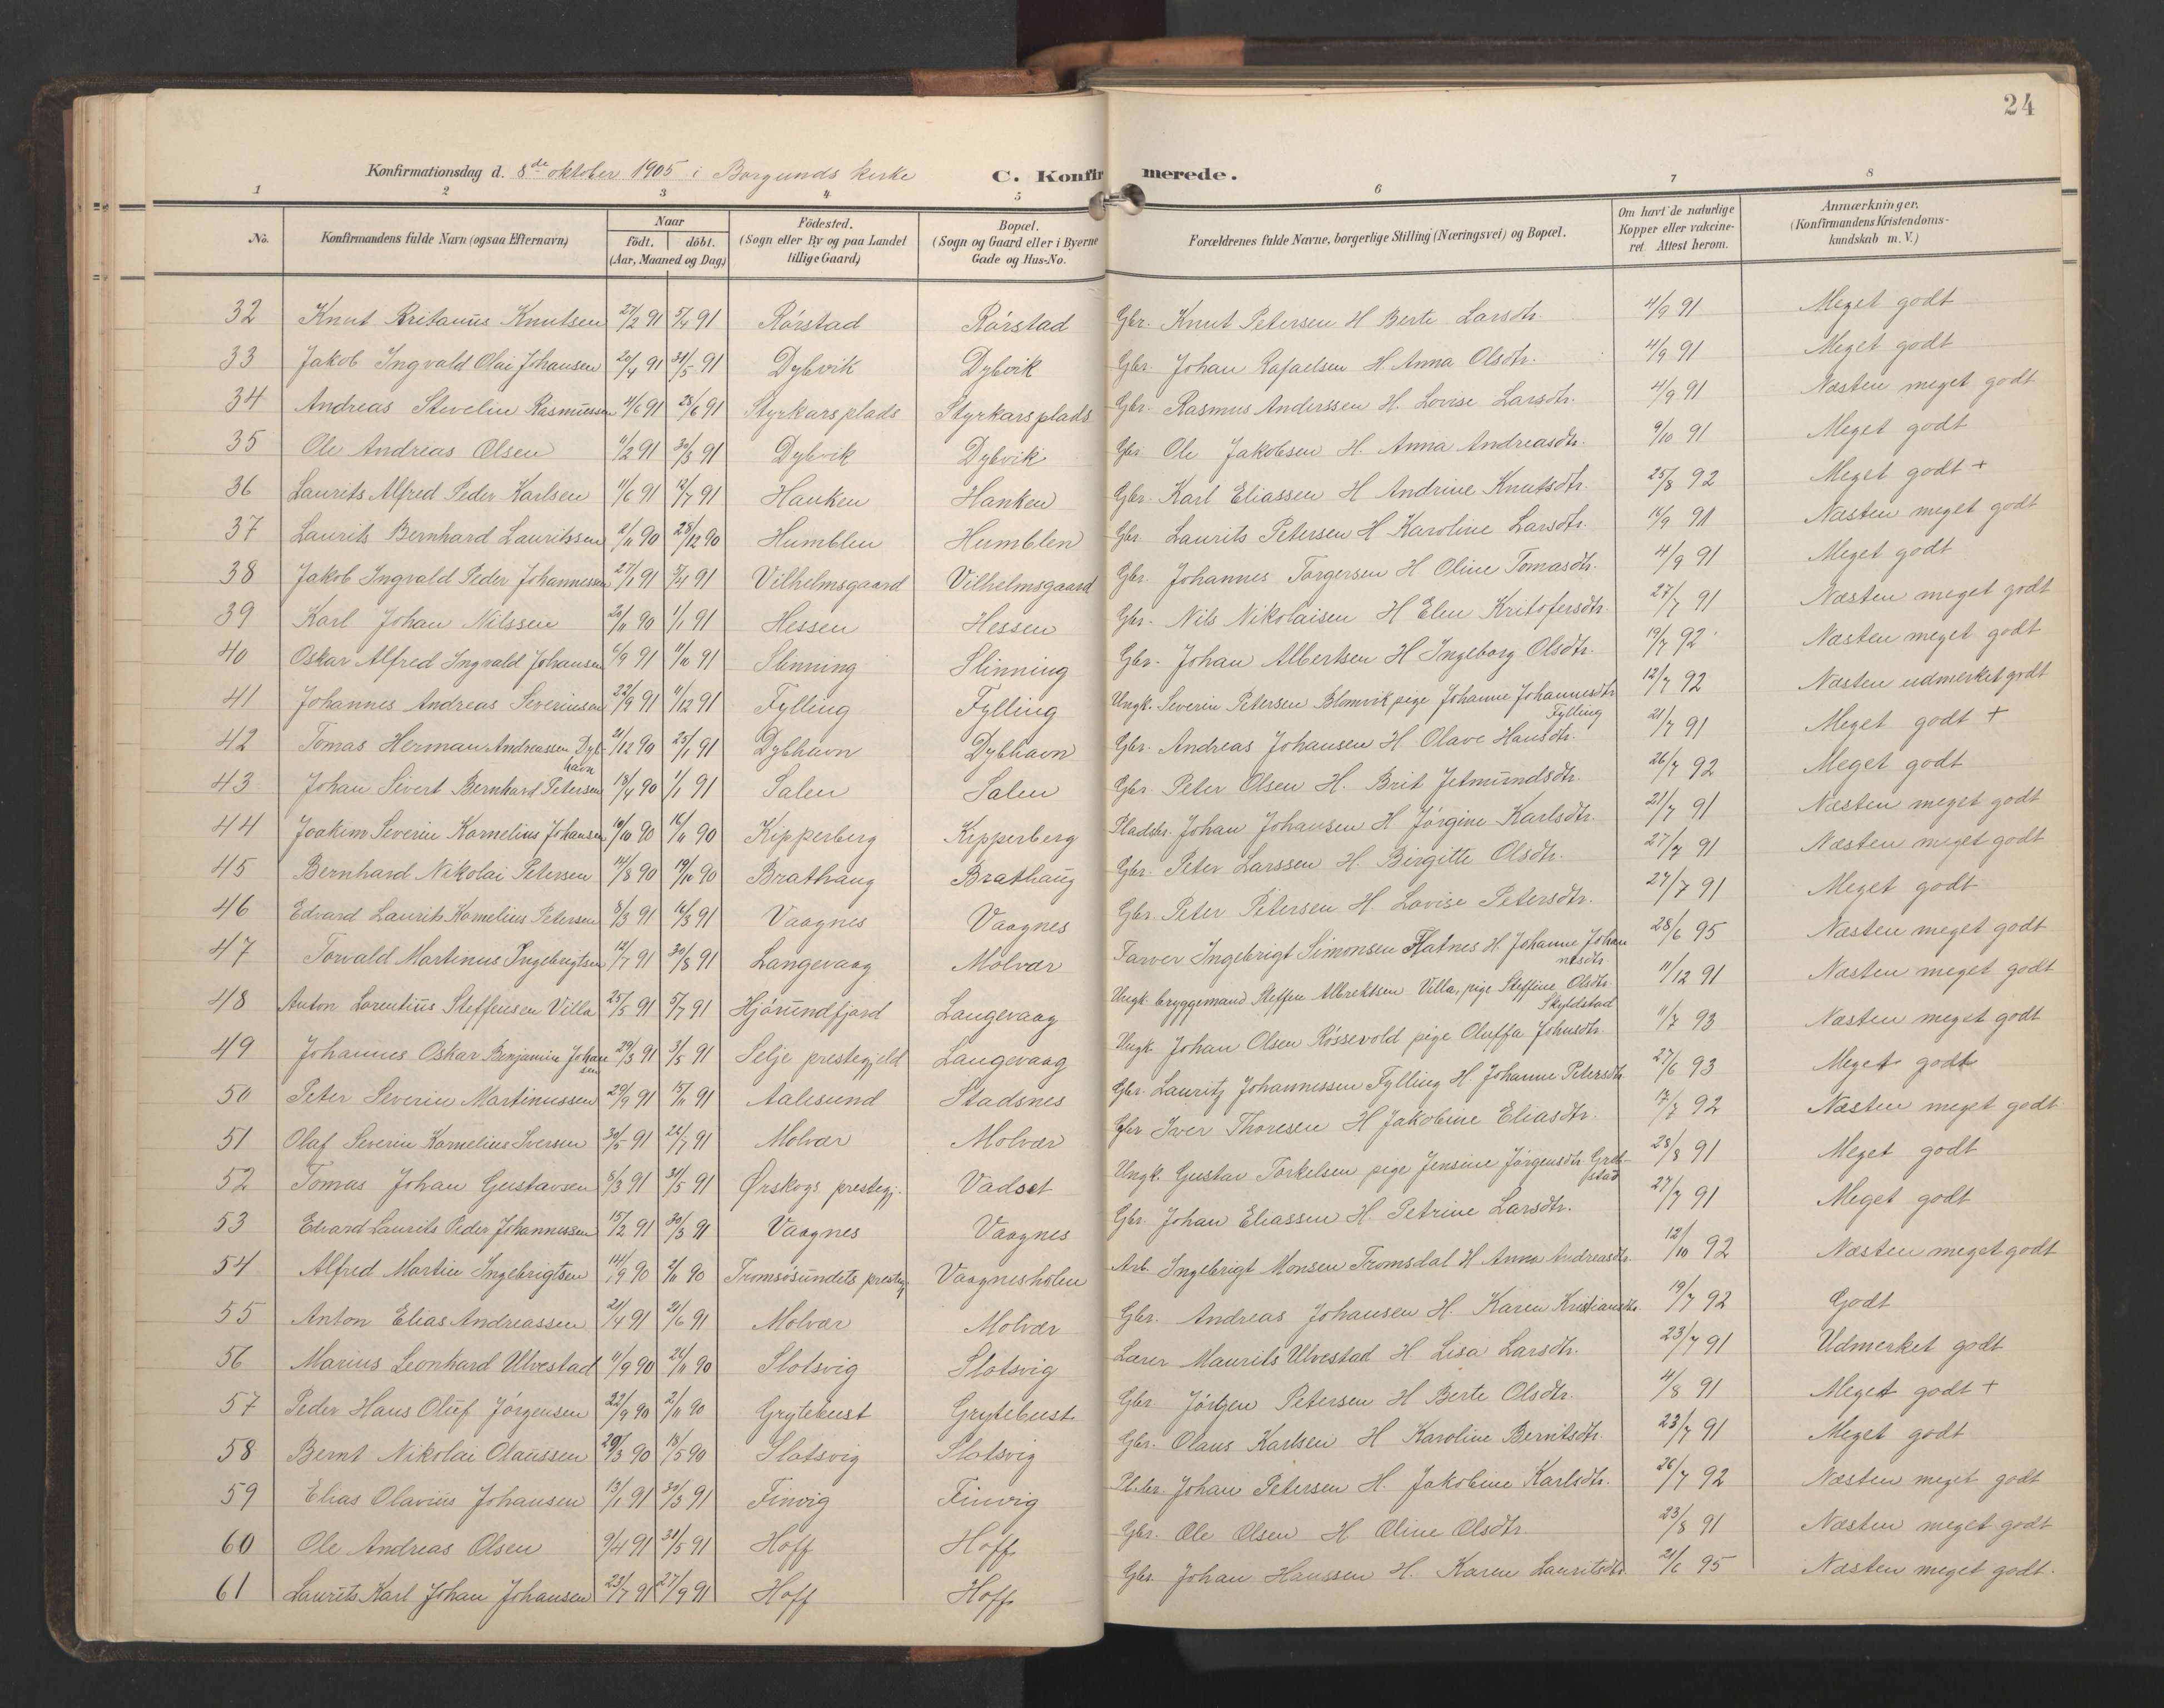 24
Konfirmationsdag d. 8de oktober 1905 i Borgunds kirke C. Konfirmerede.
1 2 3 4 5 6 7 8
No. Konfirmandens fulde Navn (ogsaa Efternavn) Naar födt. döbt. (Aar, Maaned og Dag) Födested. (Sogn eller By og paa Landet tillige Gaard) Bopæl. (Sogn og Gaard eller i Byerne Gade og Hus-No. Forældrenes fulde Navne, borgerlige Stilling (Næringsvei) og Bopæl. Om havt de naturlige Kopper eller vakcineret. Attest herom. Anmærkninger. (Konfirmandens Kristendomskundskab m. V.)
32 Knut Kritanus Knutsen 27/2 91 5/4 91 Rørstad Rørstad Gbr. Knut Petersen H Berte Larsdtr. 4/9 91 Meget godt
33 Jakob Ingvald Olai Johansen 20/4 91 31/5 91 Dybvik Dybvik Gbr. Johan Rafaelsen H Anna Olsdtr. 4/9 91 Meget godt
34 Andreas Stevelin Rasmussen 4/6 91 28/6 91 Styrkarsplads Styrkarsplads Gbr. Rasmus Anderssen H. Lovise Larsdtr. 4/9 91 Næsten meget godt
35 Ole Andreas Olsen 11/2 91 30/3 91 Dybvik Dybvik Gbr Ole Jakobsen H. Anna Andreasdtr. 9/10 91 Meget godt
36 Laurits Alfred Peder Karlsen 11/6 91 12/7 91 Hanken Hanken Gbr. Karl Eliassen H Andrine Knutsdtr. 25/8 92 Meget godt +
37 Laurits Bernhard Lauritssen 2/11 90 28/12 90 Humblen Humblen Gbr Laurits Petersen H Karoline Larsdtr. 14/9 91 Næsten meget godt
38 Jakob Ingvald Peder Johannessen 27/1 91 5/4 91 Vilhelmsgaard Vilhelmsgaard Gbr. Johannes Torgersen H Oline Tomasdtr. 4/9 91 Meget godt
39 Karl Johan Nilssen 20/11 90 1/1 91 Hessen Hessen Gbr. Nils Nikolaisen H Elen Kritofersdtr. 27/7 91 Næsten meget godt
40 Oskar Alfred Ingvald Johansen 6/9 91 11/10 91 Slinning Slinning Gbr. Johan Albertsen H Ingeborg Olsdtr. 19/7 92 Næsten meget godt
41 Johannes Andreas Severinsen 22/9 91 11/12 91 Fylling Fylling Ungk. Severin Petersen Blomvik pige Johanne Johannesdtr Fylling 12/7 92 Næsten udmerket godt
42 Tomas Herman Andreassen Dybhavn 21/12 90 25/1 91 Dybhavn Dybhavn Gbr. Andreas Johansen H Olave Hansdtr. 21/7 91 Meget godt +
43 Johan Sivert Bernhard Petersen 18/4 90 1/1 91 Salen Salen Gbr. Peter Olsen H. Brit Jetmundsdtr. 26/7 92 Meget godt
44 Joakim Severin Kornelius Johansen 10/10 90 16/11 90 Kipperberg Kipperberg Pladsbr. Johan Johansen H Jørgine Karlsdtr. 21/7 91 Næsten meget godt
45 Bernhard Nikolai Petersen 14/8 90 19/10 90 Brathaug Brathaug Gbr. Peter Larssen H. Birgitte Olsdtr. 27/7 91 Næsten meget godt
46 Edvard Laurits Kornelius Petersen 8/3 91 16/3 91 Vaagnes Vaagnes Gbr. Peter Petersen H Lovise Petersdtr. 27/7 91 Meget godt
47 Torvald Martinus Ingebrigtsen 12/7 91 30/8 91 Langevaag Molvær Farver Ingebrigt Simonsen Flatnes H. Johanne Johannesdtr. 28/6 95 Næsten meget godt
48 Anton Lorentius Steffensen Villa 25/5 91 5/7 91 Hjørundfjord Langevaag Ungk. bryggemand Steffen Albrektsen Villa, pige Steffine Olsdtr. Skyldstad 11/12 91 Næsten meget godt
49 Johannes Oskar Benjamin Johansen 29/3 91 3/5 91 Selje prestegjeld Langevaag Ungk. Johan Olsen Røssevold pige Oluffa Johnsdtr. 11/7 93 Næsten meget godt
50 Peter Severin Martinussen 29/9 91 15/11 91 Aalesund Stadsnes Gbr. Lauritz Johannessen Fylling H. Johanne Petersdtr 27/6 93 Meget godt
51 Olaf Severin Kornelius Iversen 30/5 91 26/7 91 Molvær Molvær Gbr Iver Thoresen H Jakobine Eliasdtr. 17/7 92 Næsten meget godt
52 Tomas Johan Gustavsen 8/3 91 31/5 91 Ørskogs prestegj. Vadset Ungk. Gustav Torkelsen pige Jensine Jørgensdtr. Gretstad 28/8 91 Meget godt
53 Edvard Laurits Peder Johannessen 15/2 91 30/3 91 Vaagnes Vaagnes Gbr. Johan Eliassen H Petrine Larsdtr. 27/7 91 Meget godt
54 Alfred Martin Ingebrigtsen 14/9 90 2/11 90 Tromsøsundets prestegj Vaagnesholm Arb. Ingebrigt Monsen Tromsdal H Anna Andreasdtr. 12/10 92 Næsten meget godt
55 Anton Elias Andreassen 21/4 91 21/6 91 Molvær Molvær Gbr. Andreas Johansen H. Karen Kristiansdtr. 19/7 92 Godt
56 Marius Leonhard Ulvestad 11/9 90 24/11 90 Slotsvig Slotsvig Lærer Maurits Ulvestad H Lisa Larsdtr. 23/7 91 Udmerket godt
57 Peder Hans Oluf Jørgensen 22/9 90 2/11 90 Grytebust Grytebust Gbr Jørgen Petersen H Berte Olsdtr. 4/8 91 Meget godt +
58 Bernt Nikolai Olaussen 20/3 90 18/5 90 Slotsvig Slotsvig Gbr. Olaus Karlsen H Karoline Berntsdtr. 23/7 91 Meget godt
59 Elias Olavius Johansen 13/1 91 30/3 91 Finvig Finvig Pl.br. Johan Petersen H. Jakobine Karlsdtr. 26/7 92 Næsten meget godt
60 Ole Andreas Olsen 9/4 91 31/5 91 Hoff Hoff Gbr. Ole Olsen H Oline Olsdtr. 23/8 91 Næsten meget godt
61 Laurits Karl Johan Johansen 23/7 91 27/9 91 Hoff Hoff Gbr. Johan Hanssen H. Karen Lauritsdtr. 21/6 95 Næsten meget godt.